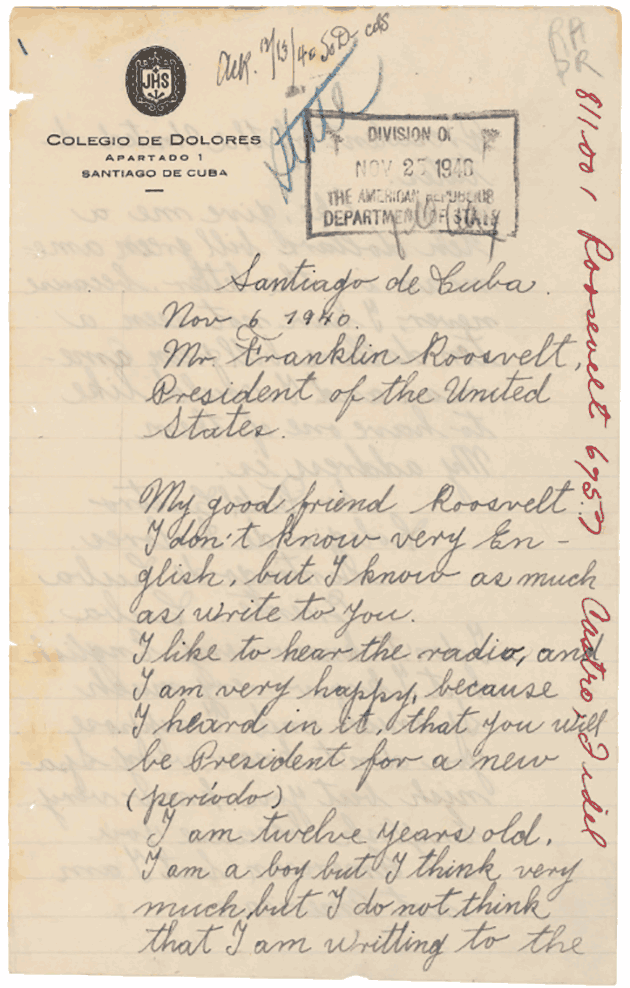 Ack. 12/13/40 SoD cds
RA
DR
State
JHS
COLEGIO DE DOLORES
APARTADO 1
SANTIAGO DE CUBA
DIVISION OF
NOV 25 1940
THE AMERICAN REPUBLICS
DEPARTMENT OF STATE
811.001 Roosevelt 6957 Castro, Fidel
Santiago de Cuba.
Nov 6 1940.
Mr Franklin Roosvelt,
President of the United
States.
My good friend Roosvelt
I don't know very En-
glish, but I know as much
as write to you.
I like to hear the radio, and
I am very happy, because
I heard in it, that you will
be President for a new
(período)
I am twelve years old.
I am a boy but I think very
much, but I do not think
that I am writting to the